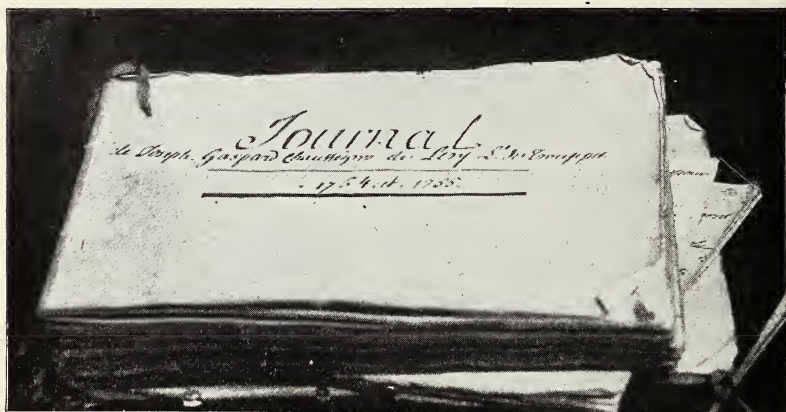 Journal
de Joseph Gaspard Chaussegros de Lery Lt. des Trouppes
1754 et 1755